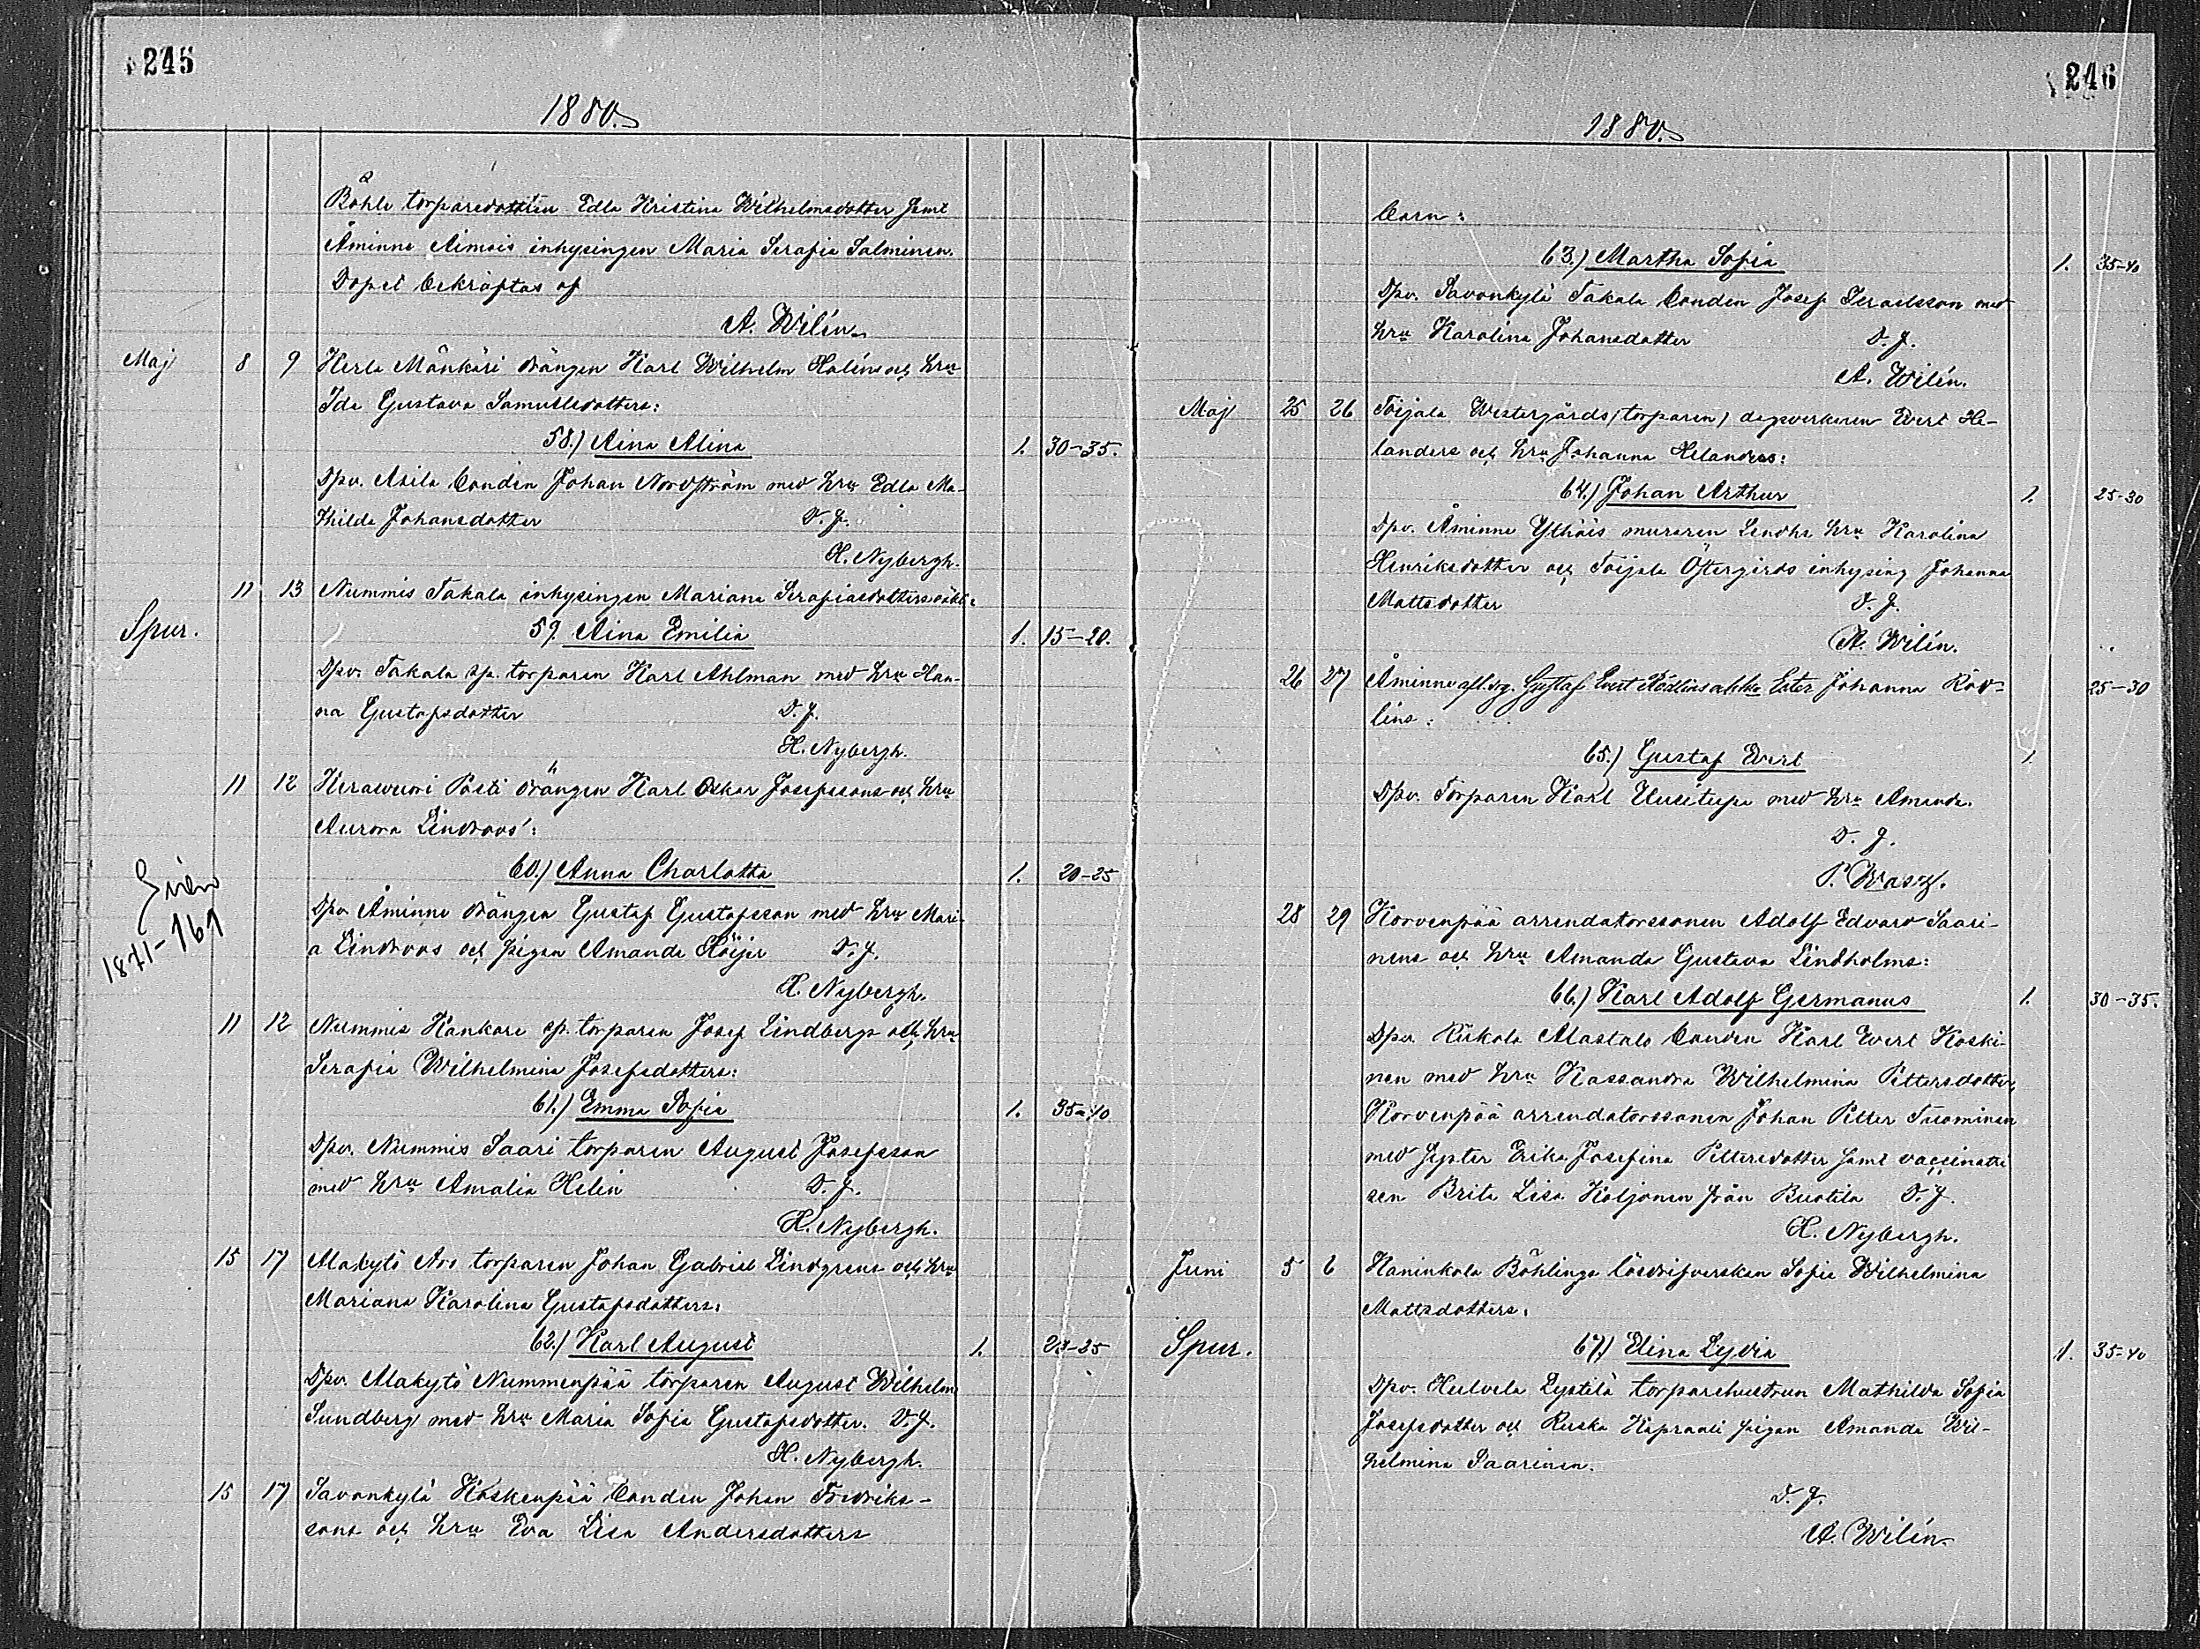 245
1880.
Böhle torparedottren Edla Kristina Wilhelmsdotter samt
Åminne Aimois inhysingen Maria Serafia Salminen.
Dopet bekräftas af
A. Wilén
Maj 8 9 Kerla Mänkäri drängen Karl Wilhelm Haléns och hru
Ida Gustava Samuelsdotters:
58.) Aina Alina 1. 30-35.
Dpv. Asila bonden Johan Nordström med hru Edla Ma-
thilda Johansdotter D. J.
H. Nybergh.
11 13 Nummis Takala inhysingen Mariana Serafiasdotters oäkt:
Spur. 59. Aina Emilia 1. 15-20.
Dpv. Takala sp. torparen Karl Ahlman med hru Han-
na Gustafsdotter D. J.
H. Nybergh.
11 12 Kerawuori Pästi drängen Karl Oskar Josefssons och hru
Aurora Lindroos':
60.) Anna Charlotta 1. 20-25
Dpv Åminne drängen Gustaf Gustafsson med hru Mari-
a Lindroos och pigan Amanda Höijer D. J.
1871-161
H. Nybergh.
11 12 Nummis Kankare sp. torparen Josef Lindbergs och hru
Serafia Wilhelmina Josefsdotters:
61.) Emma Sofia 1. 35-40.
Dpv. Nummis Saari torparen August Josefsson
med hru Amalia Helin D. J.
H. Nybergh.
15 17 Alakytö Aro torparen Johan Gabriel Lindgrens och hru
Mariana Karolina Gustafsdotters:
62.) Karl August 1. 23-25
Dpv. Alakytö Nummenpää torparen August Wilhelm
Sundberg med hru Maria Sofia Gustafsdotter. D. J.
H. Nybergh.
15 17 Savonkylä Koskenpää bonden Johan Fredriks-
sons och hru Eva Lisa Andersdotters
246
1880.
barn:
63.) Martha Sofia 1. 35-40
Dpv. Savonkylä Takala bonden Josef Israelsson med
hru Karolina Johansdotter D. J.
A. Wilén.
Maj 25 26 Toijala Westergårds (torparen) dagsverkaren Evert He-
landers och hru Johanna Helanders:
64.) Johan Arthur 1. 25-30
Dpv. Åminne Ythäis muraren Lindhs hru Karolina
Henriksdotter och Toijala Östergårds inhysing Johanna
Mattsdotter D. J.
A. Wilén.
26 27 Åminne afl. drg. Gustaf Evert Rödlins enka Ester Johanna Röd- 25-30
lins:
65.) Gustaf Evert 1
Dpv. Torparen Karl Uusitupa med hru Amanda.
D. J.
P. Wasz.
28 29 Korvenpää arrendatorssonen Adolf Edvard Saari-
nens och hru Amanda Gustava Lindholms:
66.) Karl Adolf Germanus 1. 30-35.
Dpv. Kukola Alastalo bonden Karl Evert Koski-
nen med hru Kassandra Wilhelmina Pettersdotter,
Korvenpää arrendatorssonen Johan Petter Tuominen
med syster Erika Josefina Pettersdotter samt vaccinatri
sen Brita Lisa Koljonen från Bustila D. J.
H. Nybergh.
Juni 5 6 Kaninkola Böhlings lösdrifverskan Sofia Wilhelmina
Mattsdotters:
Spur. 67.) Elina Lydia 1. 35-40
Dpv. Hulvela Pystilä torparehustrun Mathilda Sofia
Josefsdotter och Ruska Kapraali pigan Amanda Wil-
helmina Saarinen.
D. J.
A. Wilén.